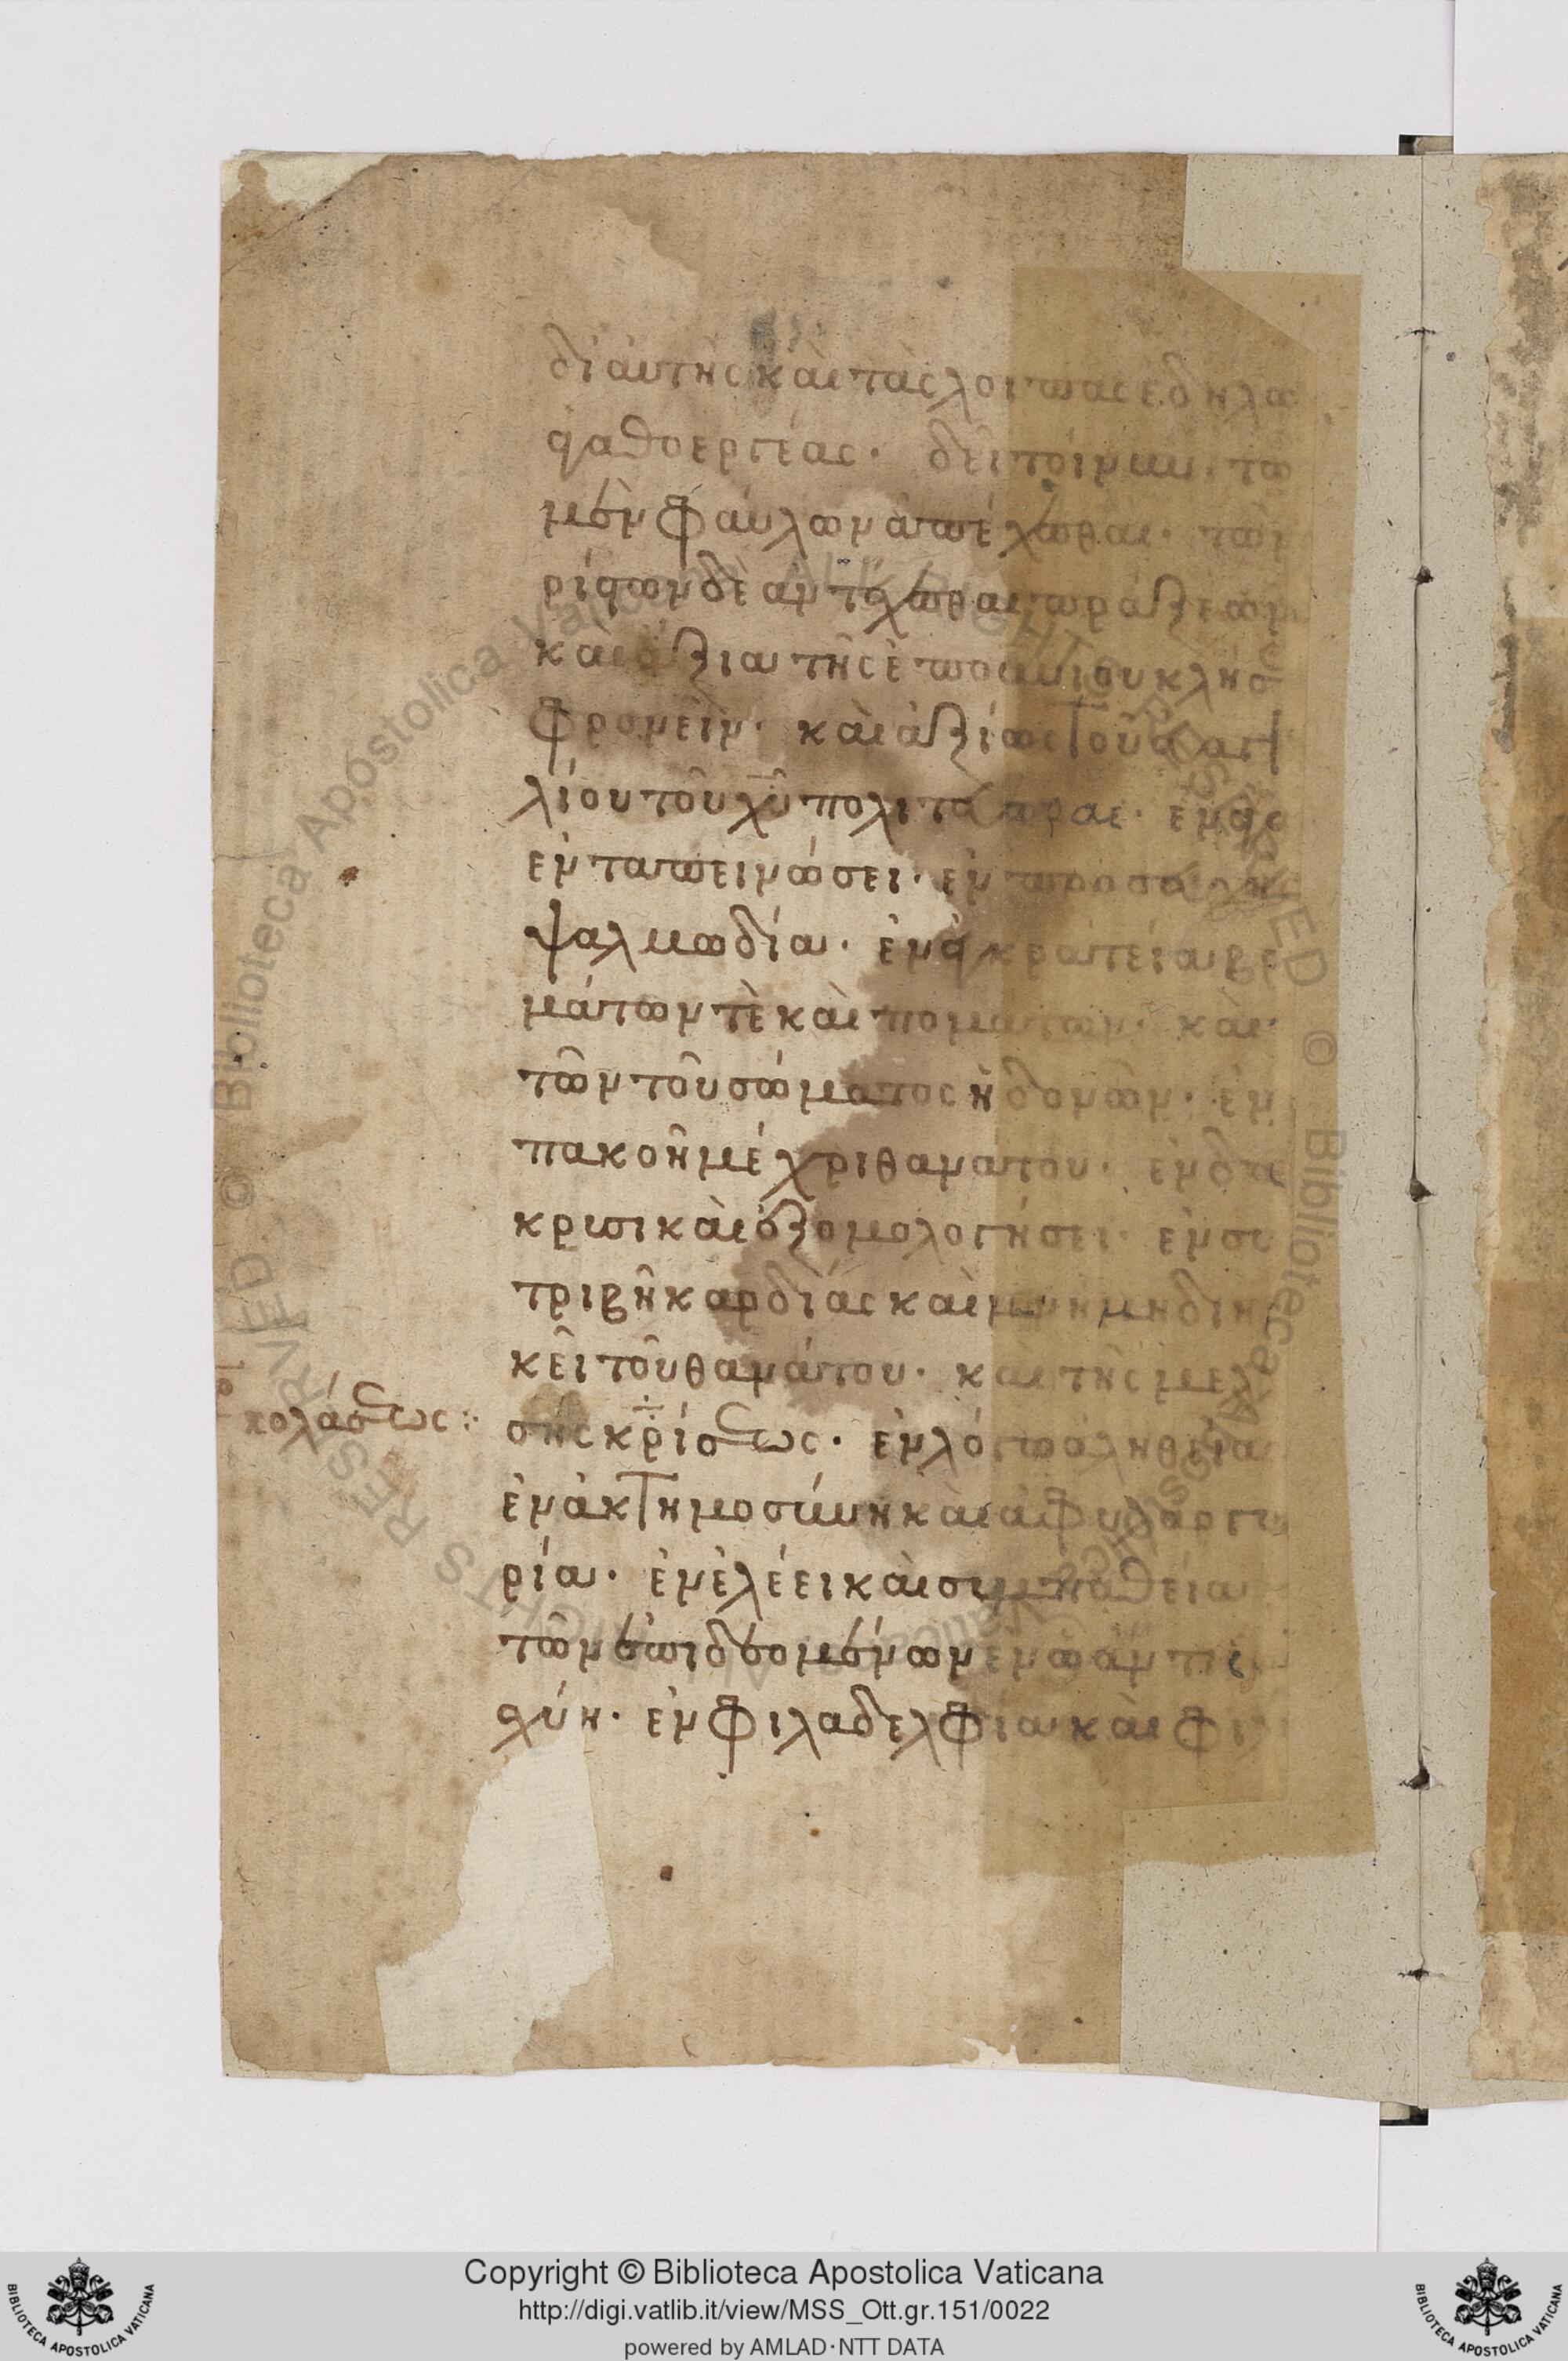 δι αυτῆς καὶ τὰς λοιπας εδήλω
γαθοεργίας· δεῖ τοίνυν· τῶ
μὲν φαύλων ἀπέχεσθαι· τῶν
δὲ ἀντέχεσθαι πράξεων
καὶ ἄξια τῆς ἐπουρανίου κλησ
φρονεῖν· καὶ ἀξίως τοῦ εὐαγγ
λίου τοῦ χῦ πολιτεύεσθαι·
ἐν ταπεινώσει· ἐν
ψαλμωδία· ἐν ἐγκρατεία βρ
μάτων τὲ καὶ πομάτων· καὶ
τῶν τοῦ σώματος ἡδονῶν· ἐν
πακοῆ μέχρι θανάτου· ἐν δια
κρισι καὶ ἐξομολογήσει· ἐν συ
τριβῆ καρδίας καὶ μνήμη διην
κεῖ τοῦ θανάτου· καὶ τῆς μελ
κολάσεως:· σης κρίσεως· ἐν λόγω ἀληθεία
ἐν ἀκτημοσύνη καὶ ἀφυλαργυ
ρία· ἐν ἐλέει καὶ συμπαθεία
τῶν ἐπιδεομένων
ἐν φιλαδελφία καὶ φι
Copyright © Biblioteca Apostolica Vaticana
http://digi.vatlib.it/view/MSS_Ott.gr.151/0022
powered by AMLAD·NTT DATA
BIBLIOTECA APOSTOLICA VATICANA
BIBLIOTECA APOSTOLICA VATICANA